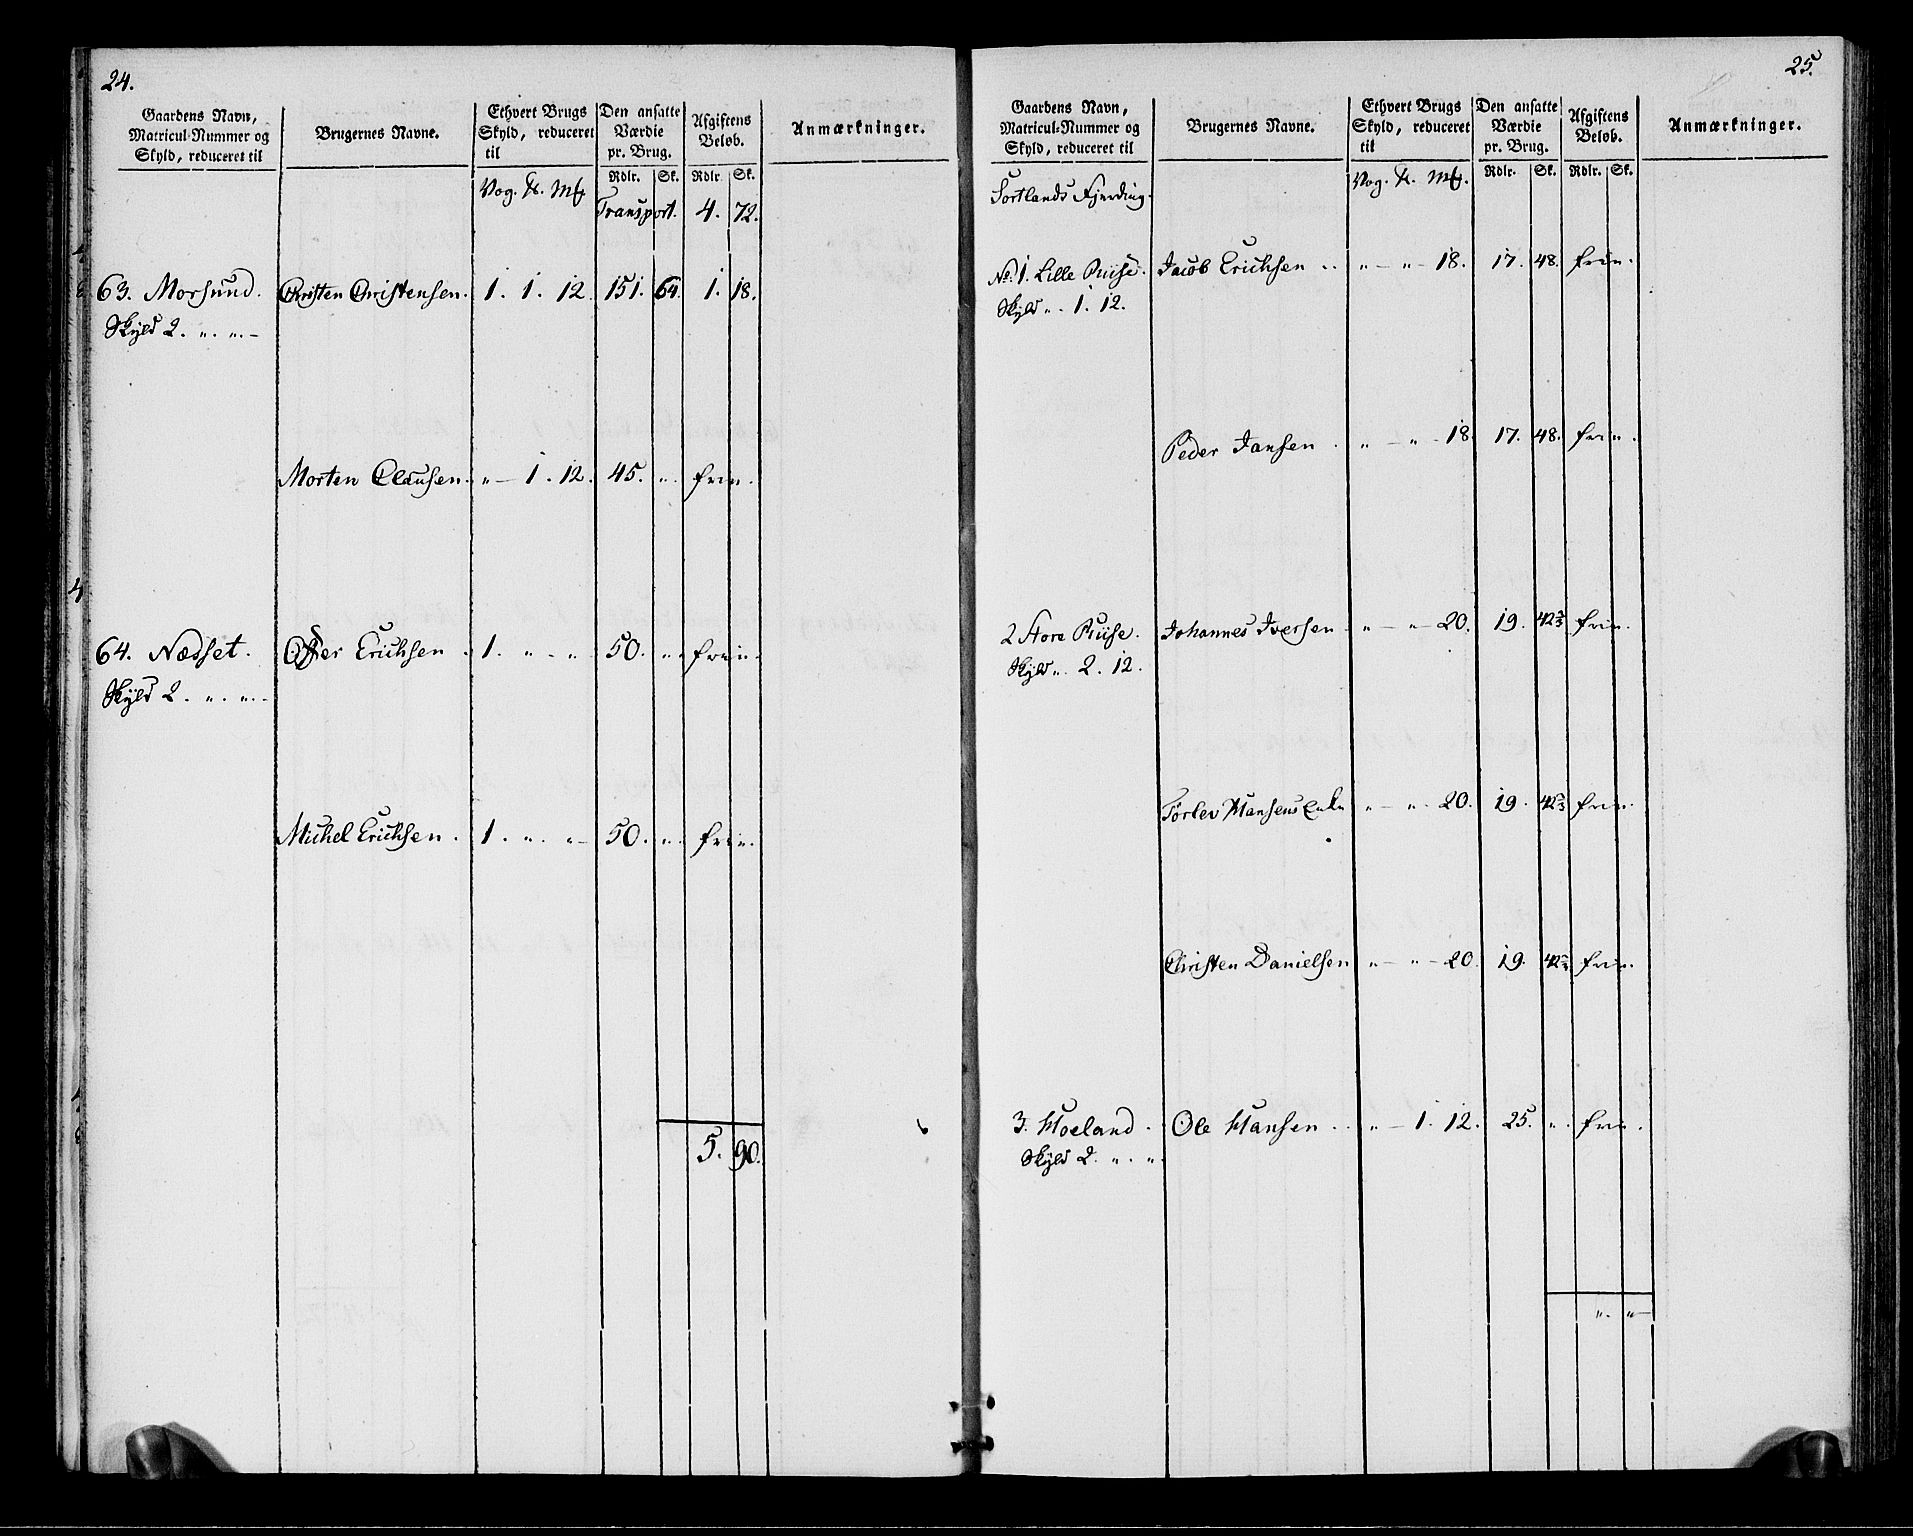 24.
Gaardens Navn, Matricul-Nummer og Skyld, reduceret til
Brugernes Navne.
Ethvert Brugs Skyld, reduceret til
Den ansatte Værdie pr. Brug.
Afgiftens Beløb.
Anmærkninger.
Rdlr. Sk. Rdlr. Sk.
Vog. ℔. Mk
Transport. 4. 72.
63. Morsund. Christen Christensen. 1. 1. 12. 151. 64. 1. 18.
Skyld 2. „. „. –
Morten Clausen. „ – 1. 12. 45. „. frie.
64. Nædset. Offer Erichsen. 1. „ – „ 50. „. frie.
Skyld 2. „. „. –
Michel Erichsen. 1. „. „ – 50. „. frie.
5. 90.
25.
Gaardens Navn, Matricul-Nummer og Skyld, reduceret til
Brugernes Navne.
Ethvert Brugs Skyld, reduceret til
Den ansatte Værdie pr. Brug.
Afgiftens Beløb.
Anmærkninger.
Rdlr. Sk. Rdlr. Sk.
Sortlands Fjerding. Vog. ℔. Mk.
No. 1. Lille Riise. Jacob Erichsen .. „ – „ – 18. 17. 48. frie.
Skyld „. 1. 12.
Peder Jansen. „ – „ – 18. 17. 48. frie.
2 Store Riise. Johannes Iversen. „ – „ – 20. 19. 42 2/3 frie.
Skyld „. 2. 12.
Torlev Hansens Enke „ – „. 20. 19. 42 2/3 frie.
Christen Danielsen „ – „ – 20. 19. 42 2/3 frie.
3. Hoeland. Ole Hansen .. „ – 1. 12. 25. „. frie.
Skyld 2. „. „.
„. „ –